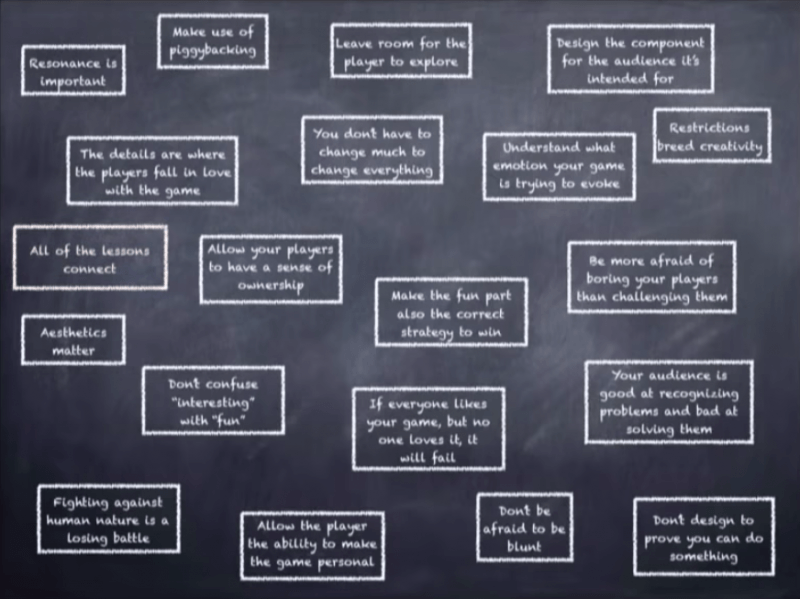 Resonance is
important
Make use of
piggybacking
Leave room for the
player to explore
Design the component
for the audience it's
intended for
The details are where
the players fall in love
with the game
You don't have to
change much to
change everything
Understand what
emotion your game
is trying to evoke
Restrictions
breed creativity
All of the lessons
connect
Allow your players
to have a sense of
ownership
Make the fun part
also the correct
strategy to win
Be more afraid of
boring your players
than challenging them
Aesthetics
matter
Don't confuse
"interesting"
with "fun"
If everyone likes
your game, but no
one loves it, it
will fail
Your audience is
good at recognizing
problems and bad at
solving them
Fighting against
human nature is a
losing battle
Allow the player
the ability to make
the game personal
Don't be
afraid to be
blunt
Don't design to
prove you can do
something